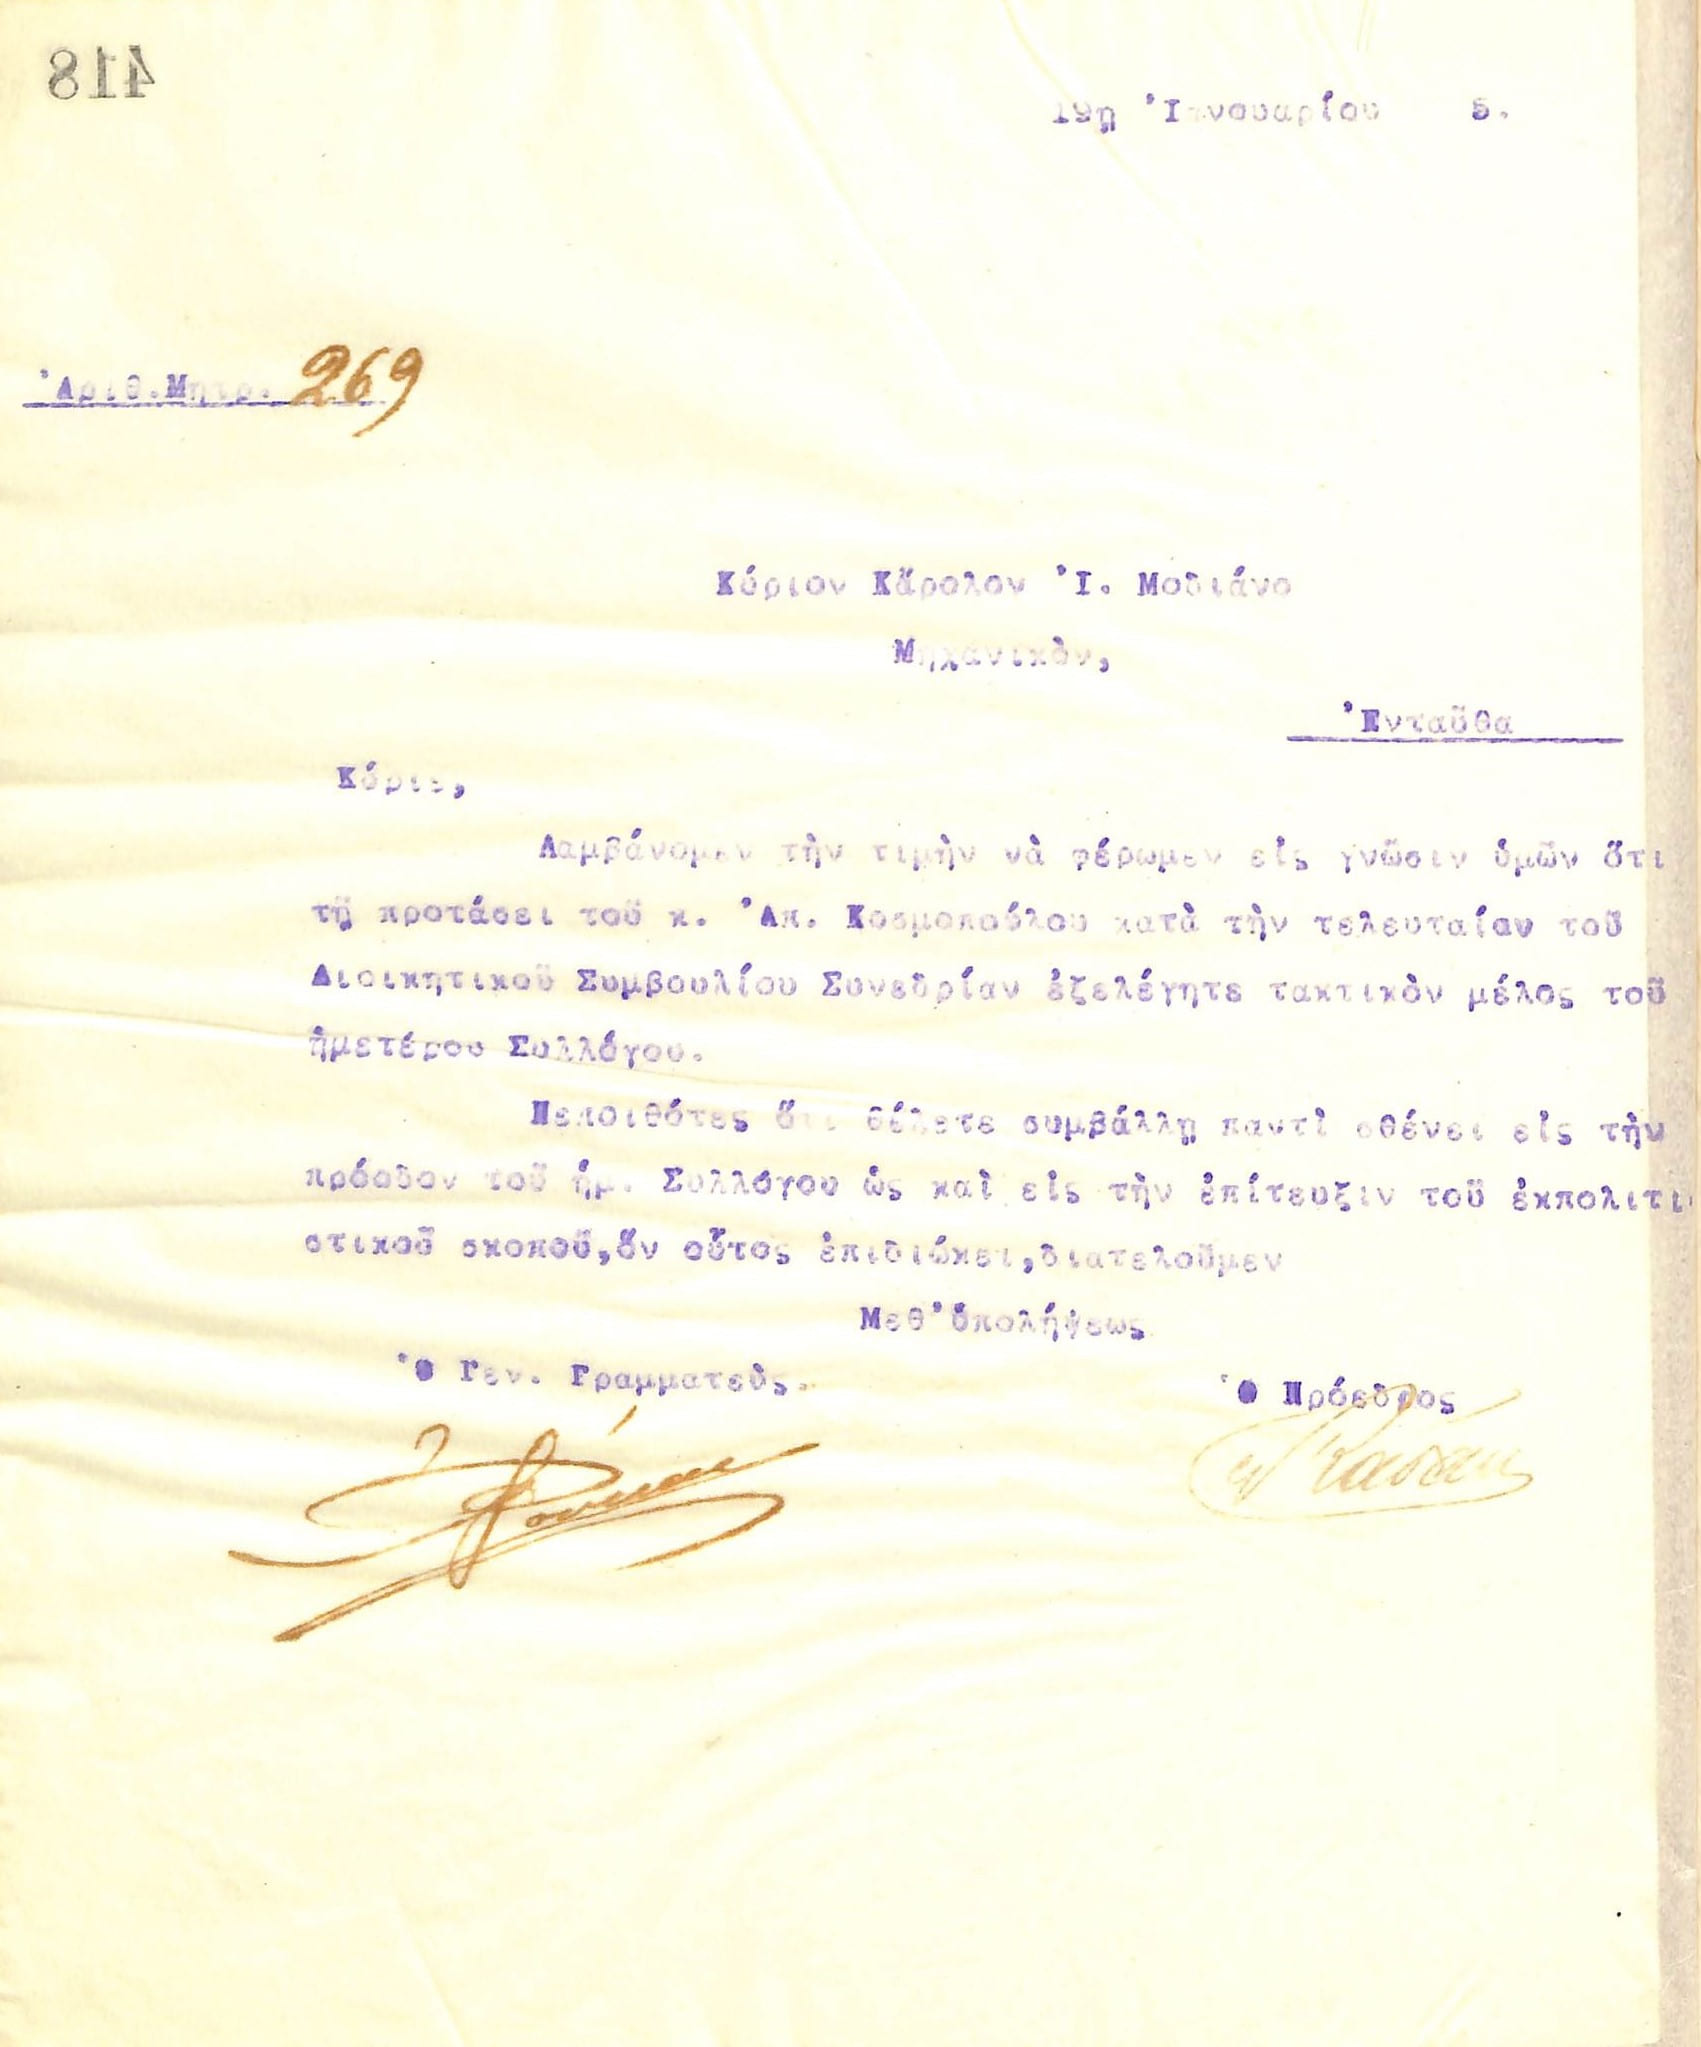 418
19ῃ Ἰανουαρίου 5.
Ἀριθ.Μητρ. 269
Κύριον Κᾶρολον Ἰ. Μοδιάνο
Μηχανικὸν,
Ἐνταῦθα
Κύριε,
Λαμβάνομεν τὴν τιμὴν νὰ φέρωμεν εἰς γνῶσιν ὑμῶν ὅτι
τῇ προτάσει τοῦ κ. Ἀπ. Κοσμοπούλου κατὰ τὴν τελευταίαν τοῦ
Διοικητικοῦ Συμβουλίου Συνεδρίαν ἐξελέγητε τακτικὸν μέλος τοῦ
ἡμετέρου Συλλόγου.
Πεποιθότες ὅτι θέλετε συμβάλλῃ παντὶ σθένει εἰς τὴν
πρόοδον τοῦ ἡμ. Συλλόγου ὡς καὶ εἰς τὴν ἐπίτευξιν τοῦ ἐκπολιτι-
στικοῦ σκοποῦ,ὅν οὗτος ἐπιδιώκει,διατελοῦμεν
Μεθ'ὑπολήψεως
Ὁ Γεν. Γραμματεὺς.
Ὁ Πρόεδρος